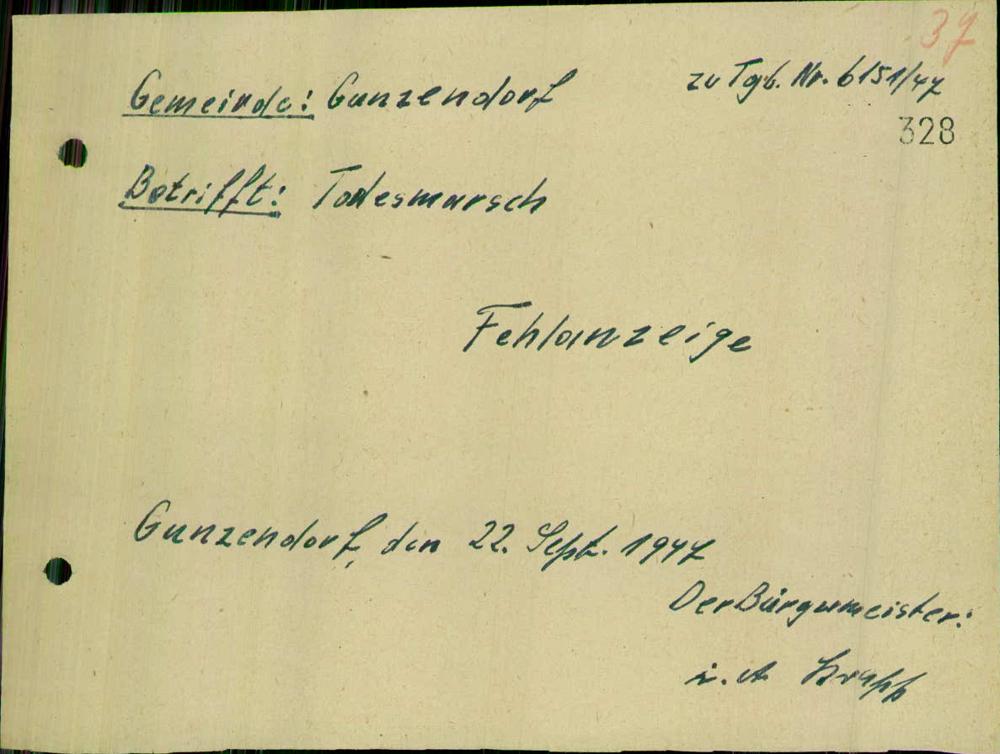 37
Gemeinde: Gunzendorf
zu Tgb. Nr. 6151/47
328
Betrifft: Todesmarsch
Fehlanzeige
Gunzendorf, den 22. Sept. 1947
Der Bürgermeister:
i. A. Krapp